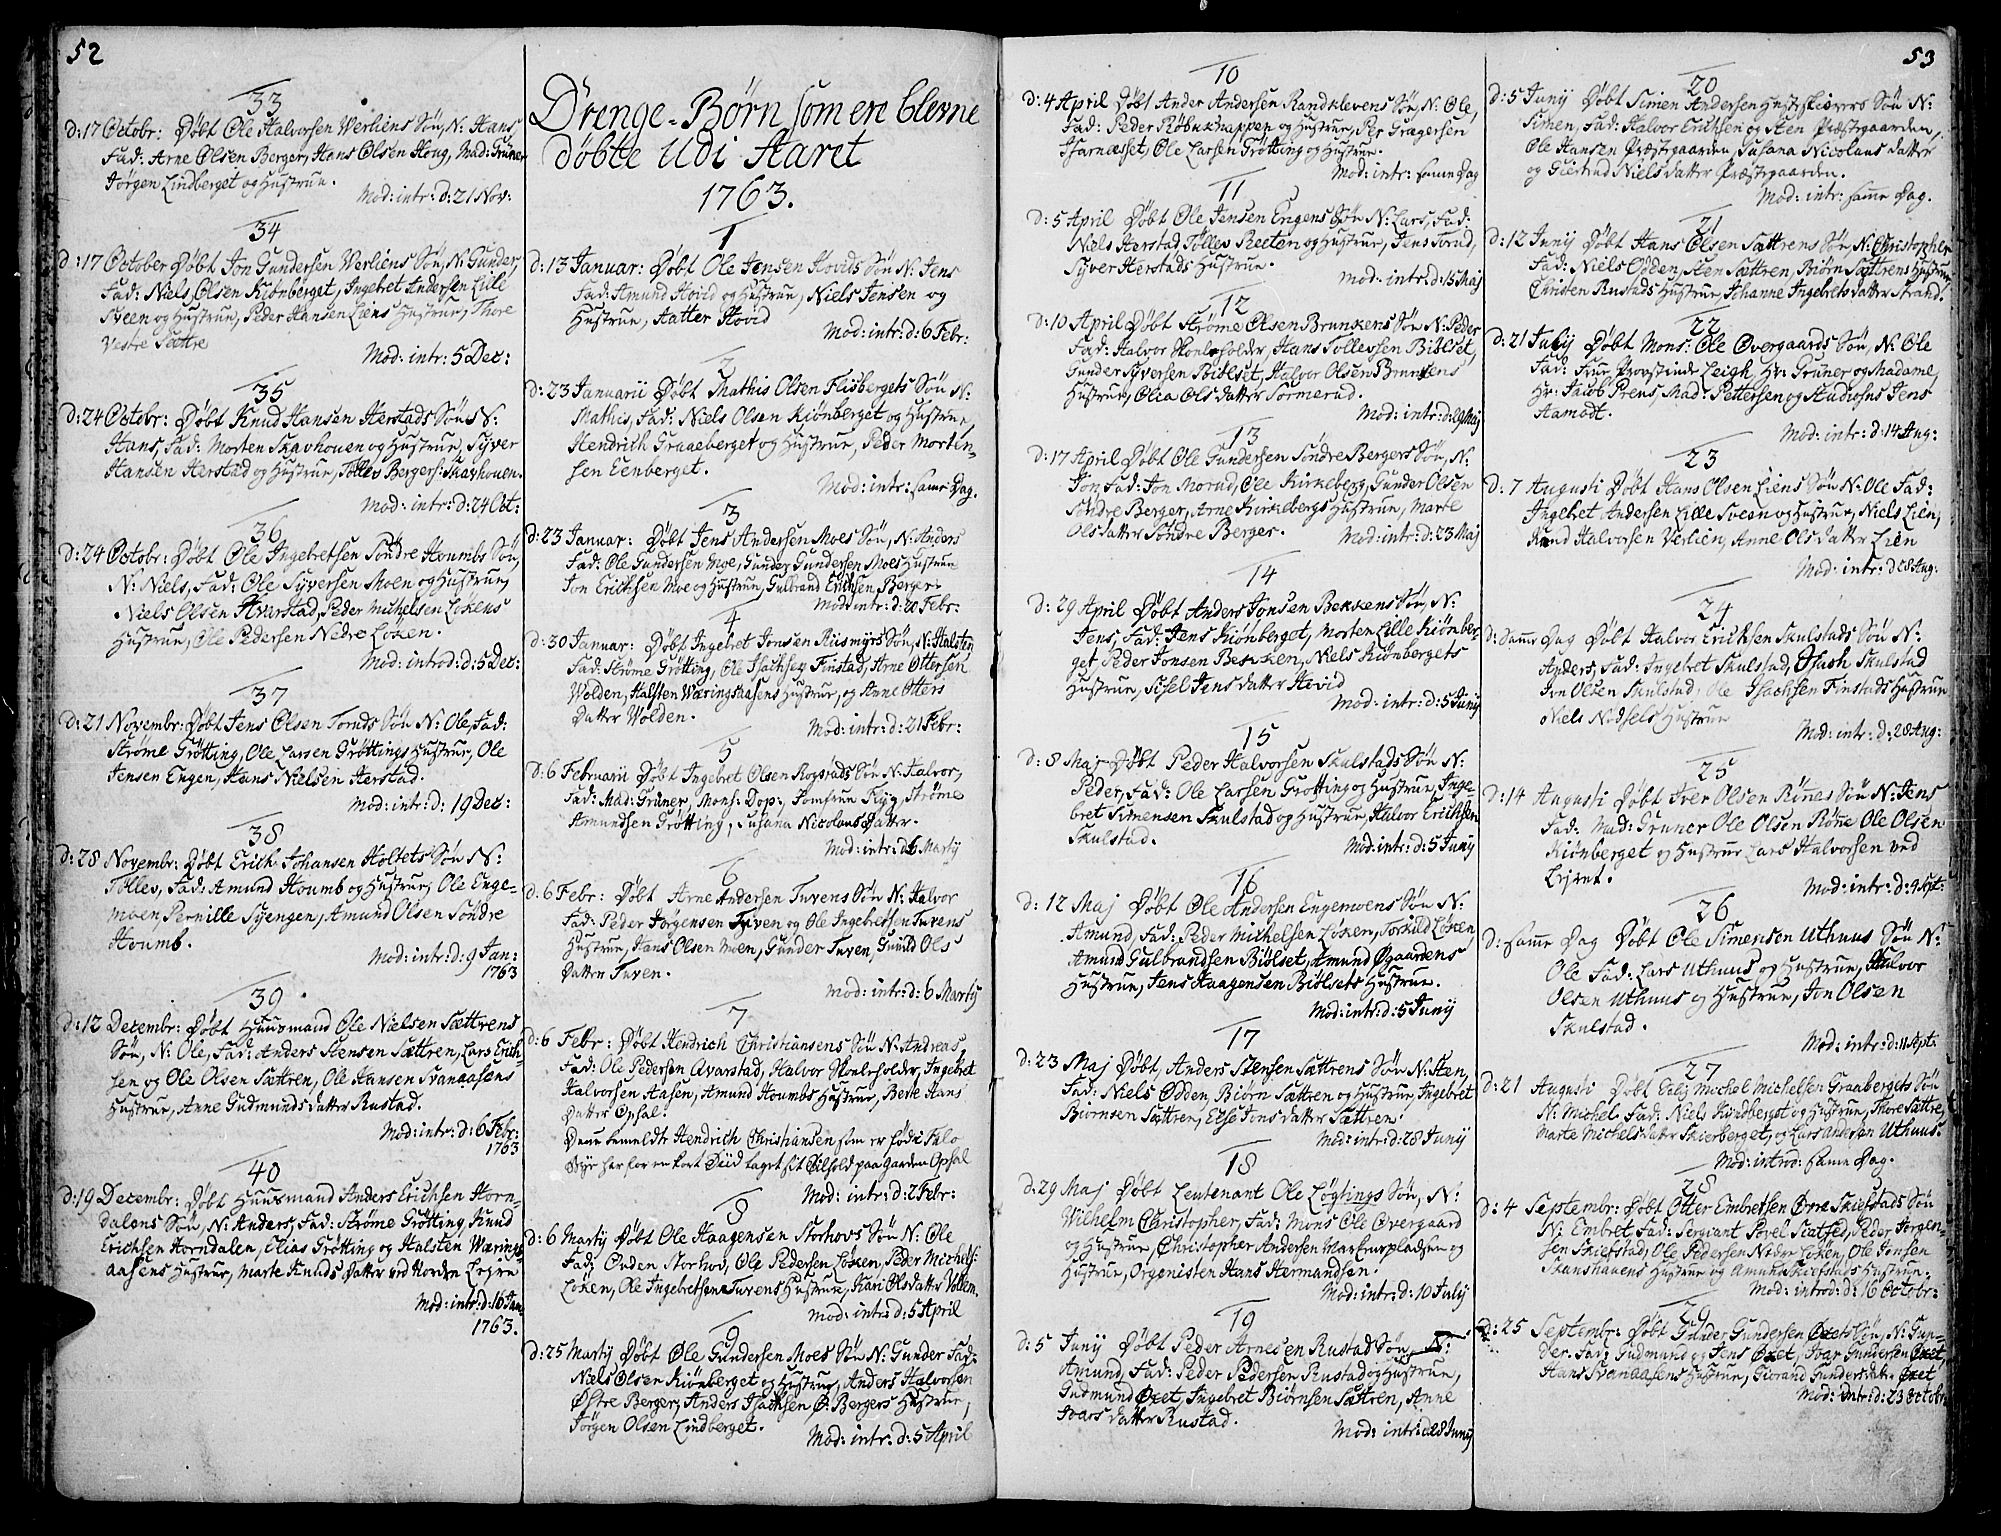 52
33
d: 17 Octobr: Døbt Ole Halvorsen Werliens Søn, N: Hans,
Fad: Arne Olsen Berger, Hans Olsen Houg, Mad: Grüner
Jörgen Lindberget og Hustrue.
Mod: intr: d: 21 Nov:
34
d: 17 October Døbt Jon Gundersen Werliens Søn, N: Gunder,
Fad: Niels Olsen Kiönberget, Ingebret Andersen Lille
Sveen og Hustrue, Peder Hansen Liens Hustrue, Thore
Vestre Sættre
Mod: intr: 5 Dec:
35
d: 24 Octobr: Døbt Knud Hansen Herstads Søn N:
Hans, Fad: Morten Skavhouen og Hustrue, Syver
Hansen Herstad og Hustrue, Tollev Bergers: Skavhouen.
Mod: intr: d: 24 Oct:
36
d: 24 Octobr: Døbt Ole Ingebretsen Söndre Houmbs Søn,
N: Niels, Fad: Ole Syversen Moen og Hustrue,
Niels Olsen Avarstad, Peder Michelsen Lökens
Hustrue, Ole Pedersen Nedre Löken.
Mod: introd: d: 5 Dec:
37
d: 21 Novembr: Døbt Jens Olsen Toruds Søn N: Ole, Fad:
Ströme Gröttting, Ole Larsen Gröttings Hustrue, Ole
Jensen Engen, Hans Nielsen Herstad.
Mod: intr: d: 19 Dec:
38
d: 28 Novembr: Døbt Erich Johansen Holtets Søn N:
Tollev, Fad: Amund Houmb og Hustrue, Ole Enge-
moen, Pernille Syengen, Amund Olsen Söndre
Houmb.
Mod: intr: d: 9 Jan:
1763
39
d: 12 Decembr: Døbt Huusmand Ole Nielsen Sættrens
Søn, N: Ole, Fad: Anders Stensen Sættren, Lars Erich-
sen og Ole Olsen Sættren, Ole Hansen Svanaasens
Hustrue, Anne Gudmunds datter Rustad.
Mod: intr: d: 6 Febr:
1763
40
d: 19 Decembr: Døbt Huusmand Anders Erichsen Horn-
dalens Søn, N: Anders, Fad: Ströme Grötting, Knud
Erichsen Horndalen, Elias Grötting og Halsten Wærings-
aasens Hustrue, Marte Knuds datter ved Norden Lejren
Mod: intr: d: 16 Jan:
1763.
Drenge-Børn som ere blevne
døbte udi Aaret
1763.
1
d: 13 Januar: Døbt Ole Jensen Hovids Søn N: Jens
Fad: Amund Hovid og Hustrue, Niels Jensen og
Hustrue, Aatter Hovid
Mod: intr: d: 6 Febr:
2
d: 23 Januarii Døbt Mathis Olsen Flisbergets Søn N:
Mathis, Fad: Niels Olsen Kiönberget og Hustrue,
Hendrich Graaeberget og Hustrue, Peder Morten-
sen Eenberget.
Mod: intr: samme Dag.
3
d: 23 Januar: Døbt Jens Andersen Moes Søn, N: Anders
Fad: Ole Gundersen Moe, Gunder Gundersen Moes Hustrue
Jon Erichsen Moe og Hustrue, Gulbrand Erichsen Berger
Mod: intr: d: 20 Febr:
4
d: 30 Januar: Døbt Ingebret Jonsen Riismyrs Søn, N: Halsten
Fad: Ströme Grötting, Ole Isachsen Finstad, Arne Ottersen
Wolden, Halsten Wæringsaasens Hustrue, og Anne Otters
Datter Wolden.
Mod: intr: d: 21 Febr:
5
d: 6 Februarii Døbt Ingebret Olsen Rogstads Søn N: Halvor,
Fad: Mad: Grüner, Mons: Dop:, Jomfrue Flyg, Ströme
Amundsen Grötting, Susana Nicolaus Datter.
Mod: intr: d: 6 Martij
6
d: 6 Febr: Døbt Arne Andersen Tuvens Søn N: Halvor
Fad: Peder Jörgensen Tuven og Ole Ingebretsen Tuvens
Hustrue, Hans Olsen Moen, Gunder Tuven, Gunild Ols
Datter Tuven.
Mod: intr: d: 6 Martij
7
d: 6 Febr: Døbt Hendrich Christiansens Søn N: Andreas,
Fad: Ole Pedersen Avarstad, Halvor Skoeleholder, Ingebret
Halvorsen Aasen, Amund Houmbs Hustrue, Berte Hans
Datter Opsal.
Denne bemeldte Hendrich Christiansen som er föd i Falo
Bye har for en kort Tiid taget sit Tilhold paa Gaarden Opsal
Mod: intr: d: 2 Febr:
8
d: 6 Martij Døbt Ole Haagensen Storhovs Søn N: Ole
Fad: Ovden Storhov, Ole Pedersen Löken, Peder Michels:
Löken, Ole Ingebretsen Tuvens Hustrue, Kari Ols datter Vollem.
Mod: intr: d: 5 April
9
d: 25 Martij Døbt Ole Gundersen Moes Søn N: Gunder Fad:
Niels Olsen Kiönberget og Hustrue, Anders Halvorsen
Østre Berger, Anders Isachsen Ø: Bergers Hustrue,
Jörgen Olsen Lindberget.
Mod: intr: d: 5 April
10
d: 4 April Døbt Ander Andersen Randklevens Søn, N: Ole,
Fad: Peder Röbuknappen og Hustrue, Per Gragersen
Hiarnæset, Ole Larsen Grötting og Hustrue.
Mod: intr: samme Dag
11
d: 5 April Døbt Ole Jensen Engens Søn N: Lars, Fad:
Niels Herstad, Tollev Reeten og Hustrue, Jens Torud,
Syver Herstads Hustrue.
Mod: intr: d: 15 Maj
12
d: 10 April Døbt Ströme Olsen Brunkens Søn N: Peder
Fad: Halvor Skoeleholder, Hans Tollevsen Biölset,
Gunder Syversen Biölset, Halvor Olsen Brunkens
Hustrue, Olia Ols datter Sormerud.
Mod: intr: d: 29 Maj
13
d: 17 April Døbt Ole Gundersen Söndre Bergers Søn, N:
Jon Fad: Jon Morud, Ole Kirkeberg, Gunder Olsen
Söndre Berger, Arne Kirkebergs Hustrue, Marte
Ols datter Söndre Berger.
Mod: intr: d: 23 Maj
14
d: 29 April Døbt Anders Jonsen Bekkens Søn, N:
Jens, Fad: Jens Kiönberget, Morten Lille Kiönber-
get, Peder Jonsen Bekken, Niels Kiönbergets
Hustrue, Sisel Jens datter Hovid
Mod: intr: d: 5 Junij
15
d: 8 Maj Døbt Peder Halvorsen Skulstads Søn N:
Peder, Fad: Ole Larsen Grötting og Hustrue, Inge-
bret Simensen Skulstad og Hustrue, Halvor Erichsen
Skulstad.
Mod: intr: d: 5 Junij
16
d: 12 Maj Døbt Ole Andersen Engemoens Søn N:
Amund, Fad: Peder Michelsen Löken, Torkild Löken
Amund Gulbrandsen Biölset, Amund Øgaardens
Hustrue, Jens Haagensen Biölsets Hustrue.
Mod: intr: d: 5 Junij
17
d: 23 Maj Døbt, Anders Stensen Sættrens Søn N: Sten,
Fad: Niels Odden, Biörn Sættren og Hustrue, Ingebret
Biörnsen Sættren, Else Jons datter Sættren.
Mod: intr: d: 28 Junij
18
d: 29 Maj Døbt Leutenant Ole Løgtings Søn, N:
Wilhelm Christopher, Fad: Mons Ole Overgaard
og Hustrue, Christopher Andersen Markeurpladsen og
Hustrue, Orgenisten Hans Hermandsen.
Mod: intr: d: 10 July
19
d: 5 Junij Døbt Peder Arnesen Rustad Søn, N:
Amund, Fad: Peder Pedersen Rustad og Hustrue,
Gudmund Øxet, Ingebret Biörnsen Sættren, Anne
Ivars datter Rustad.
Mod: intr: d: 28 Junij
53
20
d: 5 Junij Døbt Simen Andersen Hustskierers Søn N:
Simen, Fad: Halvor Erichsen og Sten Præstgaarden,
Ole Hansen Præstgaarden, Susana Nicolaus datter
og Giertrud Niels datter Præstgaarden.
Mod: intr: samme Dag.
21
d: 12 Junij Døbt Hans Olsen Sættrens Søn, N: Christopher
Fad: Niels Odden, Sten Sættren, Biörn Sættrens Hustrue
Christen Rustads Hustrue, Johanne Ingebrets datter Strand.
22
d: 21 Julij Døbt Mons: Ole Overgaards Søn, N: Ole
Fad: Frue Provstinde Leigh, Hr: Grüner og Madame,
Hr: Jacob Prens, Mad: Pettersen og Studiosus Jens
Aamodt.
Mod: intr: d: 14 Aug:
23
d: 7 Augusti Døbt Hans Olsen Liens Søn N: Ole Fad:
Ingebret Andersen Lille Sveen og Hustrue, Niels Lien,
Knud Halvorsen Verlien, Anne Ols datter Lien
Mod: intr: d: 28 Aug:
24
d: Samme Dag Døbt Halvor Erichsen Skulstads Søn N:
Anders, Fad: Ingebret Skulstad, Isach Skulstad
Jon Olsen Skulstad, Ole Isachsen Finstads Hustrue
Niels Nordsels Hustrue
Mod: intr: d: 28 Aug:
25
d: 14 Augusti Døbt Iver Olsen Rönes Søn N: Jens
Fad: Mad: Gruner Ole Olsen Röne Ole Olsen
Kiönberget og Hustrue Lars Halvorsen ved
Lejret.
Mod: intr: d: 4 Sept:
26
d: samme Dag Døbt Ole Simensen Uthuus Søn N:
Ole Fad: Lars Uthuus og Hustrue, Halvor
Olsen Uthuus og Hustrue, Jon Olsen
Skulstad.
Mod: intr: d: 11 Sept:
27
d: 21 Augusti Døbt Salig Michel Michelsen Graabergets Søn
N: Michel Fad: Niels Kiöndberget og Hustrue, Thore Sættre,
Marte Michels datter Skierberget, og Lars Andersen Uthuus.
Mod: introd: samme Dag.
28
d: 4 Septembr: Døbt Otter Embretsen Øvre Skiefstads Søn
N: Embret Fad: Sergiant Povel Sætsted, Peder Jorgen-
sen Skiefstad, Ole Pedersen Nedre Löken, Ole Jonsen
Skanshauens Hustrue og Amund Skiefstads Hustrue.
Mod: introd: d: 16 Octobr:
29
d: 25 Septembr: Døbt Gunder Gundersen Øxets Søn, N: Gun-
der. Fad: Gudmund og Jens Øxet, Ivar Gundersen Øxet,
Hans Svanaasens Hustrue, Giorand Gunders datter Øxet
Mod: intr: d: 23 Octobr: